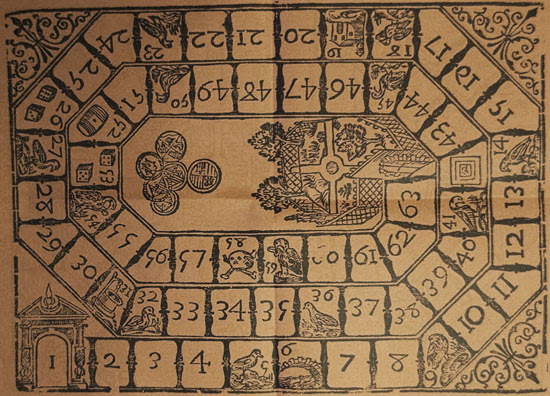 1 2 3 4 5 6 7 8 9
10 11 12 13 14 15 16 17
18 19 20 21 22 23 24
25 26 27 28 29 30
32 33 34 35 36 37 38
39 40 41 43 44
45 46 47 48 49 50 51
52 53 54 55
56 57 58 59 60 61 62 63